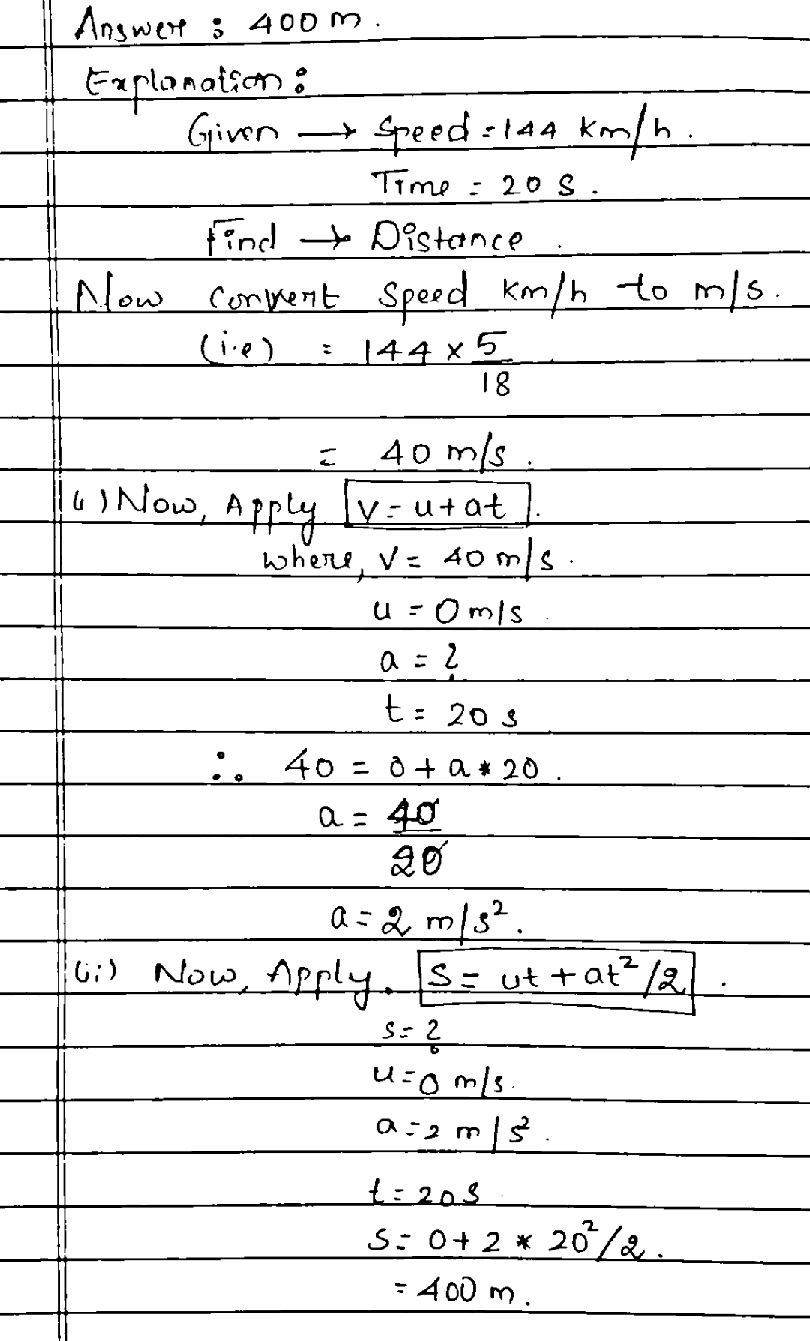 Answer : 400 m.
Explanation :
Given → Speed = 144 km/h.
Time = 20 s.
Find → Distance.
Now convert speed km/h to m/s.
(i.e) = 144 × 5
18
= 40 m/s.
(i) Now, Apply v = u + at.
where, v = 40 m/s.
u = 0 m/s
a = ?
t = 20 s
∴ 40 = 0 + a * 20.
a = 40
20
a = 2 m/s².
(ii) Now, Apply. S = ut + at²/2.
s = ?
u = 0 m/s.
a = 2 m/s².
t = 20 s
S = 0 + 2 * 20²/2.
= 400 m.